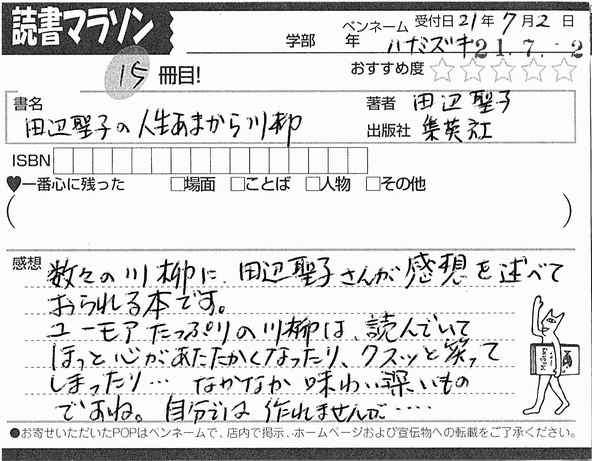 読書マラソン
学部 年 ペンネーム 受付日21年7月2日
ハナミズキ 21.7.-2
15冊目!
おすすめ度☆☆☆☆☆
書名 田辺聖子の人生あまから川柳
著者 田辺聖子
出版社 集英社
ISBN
♥一番心に残った □場面 □ことば □人物 □その他
( )
感想 数々の川柳に、田辺聖子さんが感想を述べて
おられる本です。
ユーモアたっぷりの川柳は、読んでいて
ほっと心があたたかくなったり、クスッと笑って
しまったり… なかなか味わい深いもの
ですね。自分では作れませんが……
●お寄せいただいたPOPはペンネームで、店内で掲示、ホームページおよび宣伝物への転載をご了承ください。